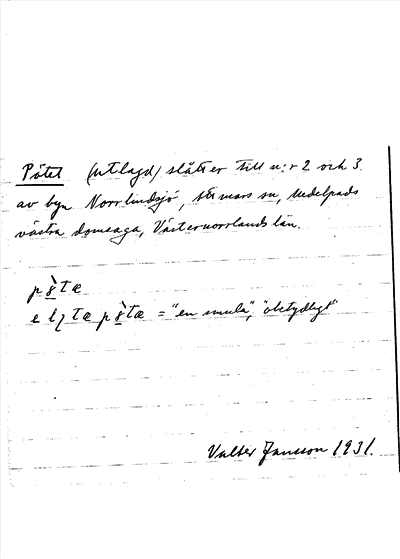 Pötet (utlagd) slåtter till n:r 2 och 3
av byn Norrlindsjö, mars sn, Medelpads
västra domsaga, Västernorrlands län.
= "en smula", "obetydligt"
Valter Jansson 1931.